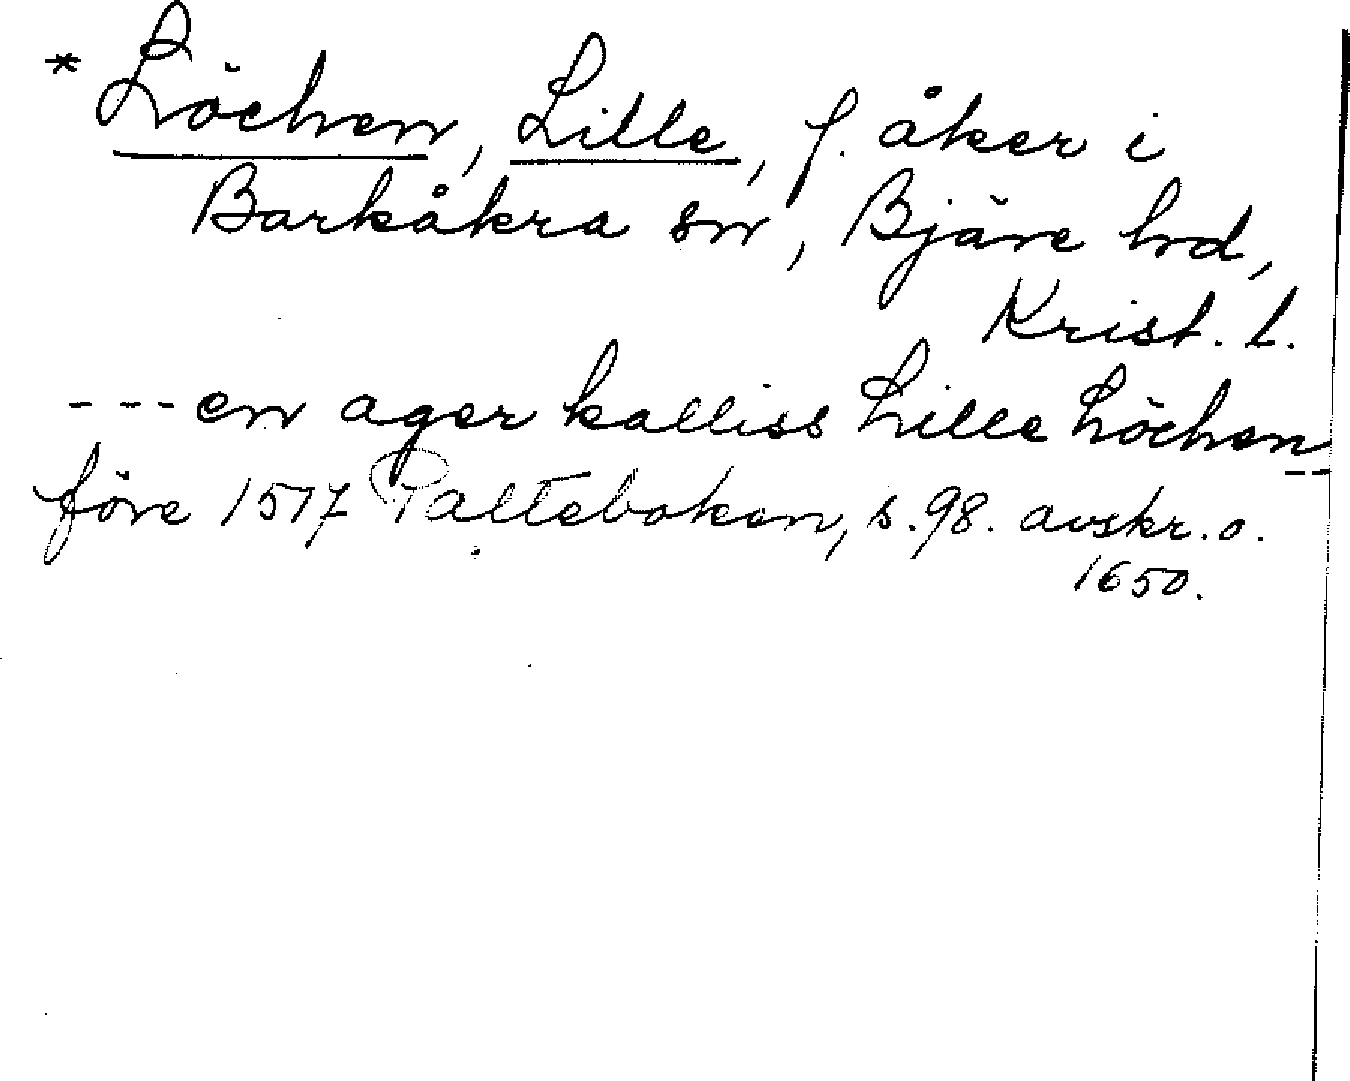 * Löchen, Lille, f. åker i
Barkåkra sn, Bjäre hd,
Krist. l.
--- en ager kalliss Lille Löchen --
före 1517 Palteboken, s. 98. avskr. o.
1650.